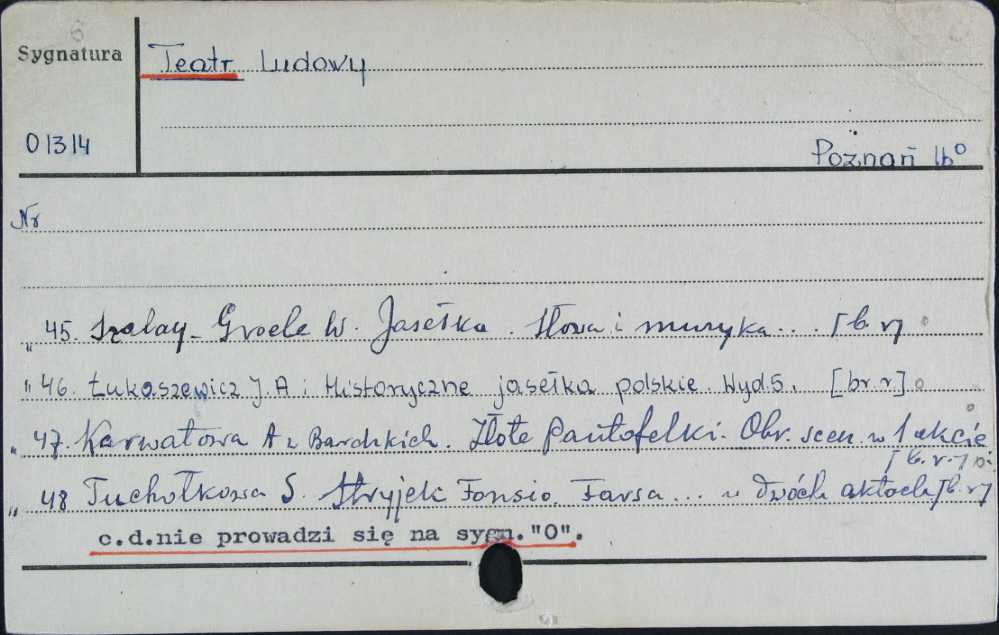 6
Sygnatura
Teatr Ludowy
01314
Poznań 16°
Nr
" 45. Szalay-Groele W. Jasełka. Słowa i muzyka... [b.r]
" 46. Łukaszewicz J. A: Historyczne jasełka polskie. Wyd. 5. [br.r.]
" 47. Karwatowa A z Bardzkich. Złote pantofelki. Obr. scen. w 1 akcie
[b.r.]
" 48 Tuchołkowa S. Stryjek Fonsio. Farsa... w dwóch aktach [b.r]
c.d.nie prowadzi się na sygn."O".